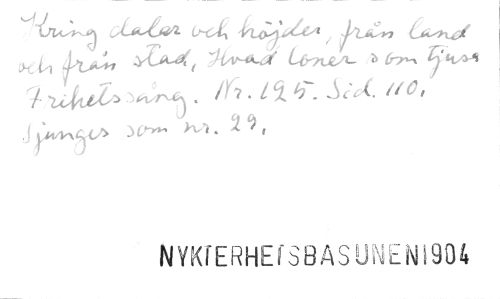 Kring dalar och höjder, från land
och från stad, Hvad toner som tjusa
Frihetssång. Nr. 125. Sid. 110.
Sjunges som nr. 29.
NYKTERHETSBASUNEN 1904